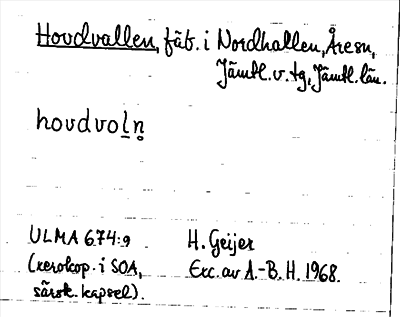 Hovdvallen, fäb. i Nordhallen, Åresn,
Jämtl. v. tg, Jämtl. län.
hovdvoḻn̥
ULMA 674:9 H. Geijer
(xerokop. i SOA, Exc. av A.-B. H. 1968.
särsk. kapsel).